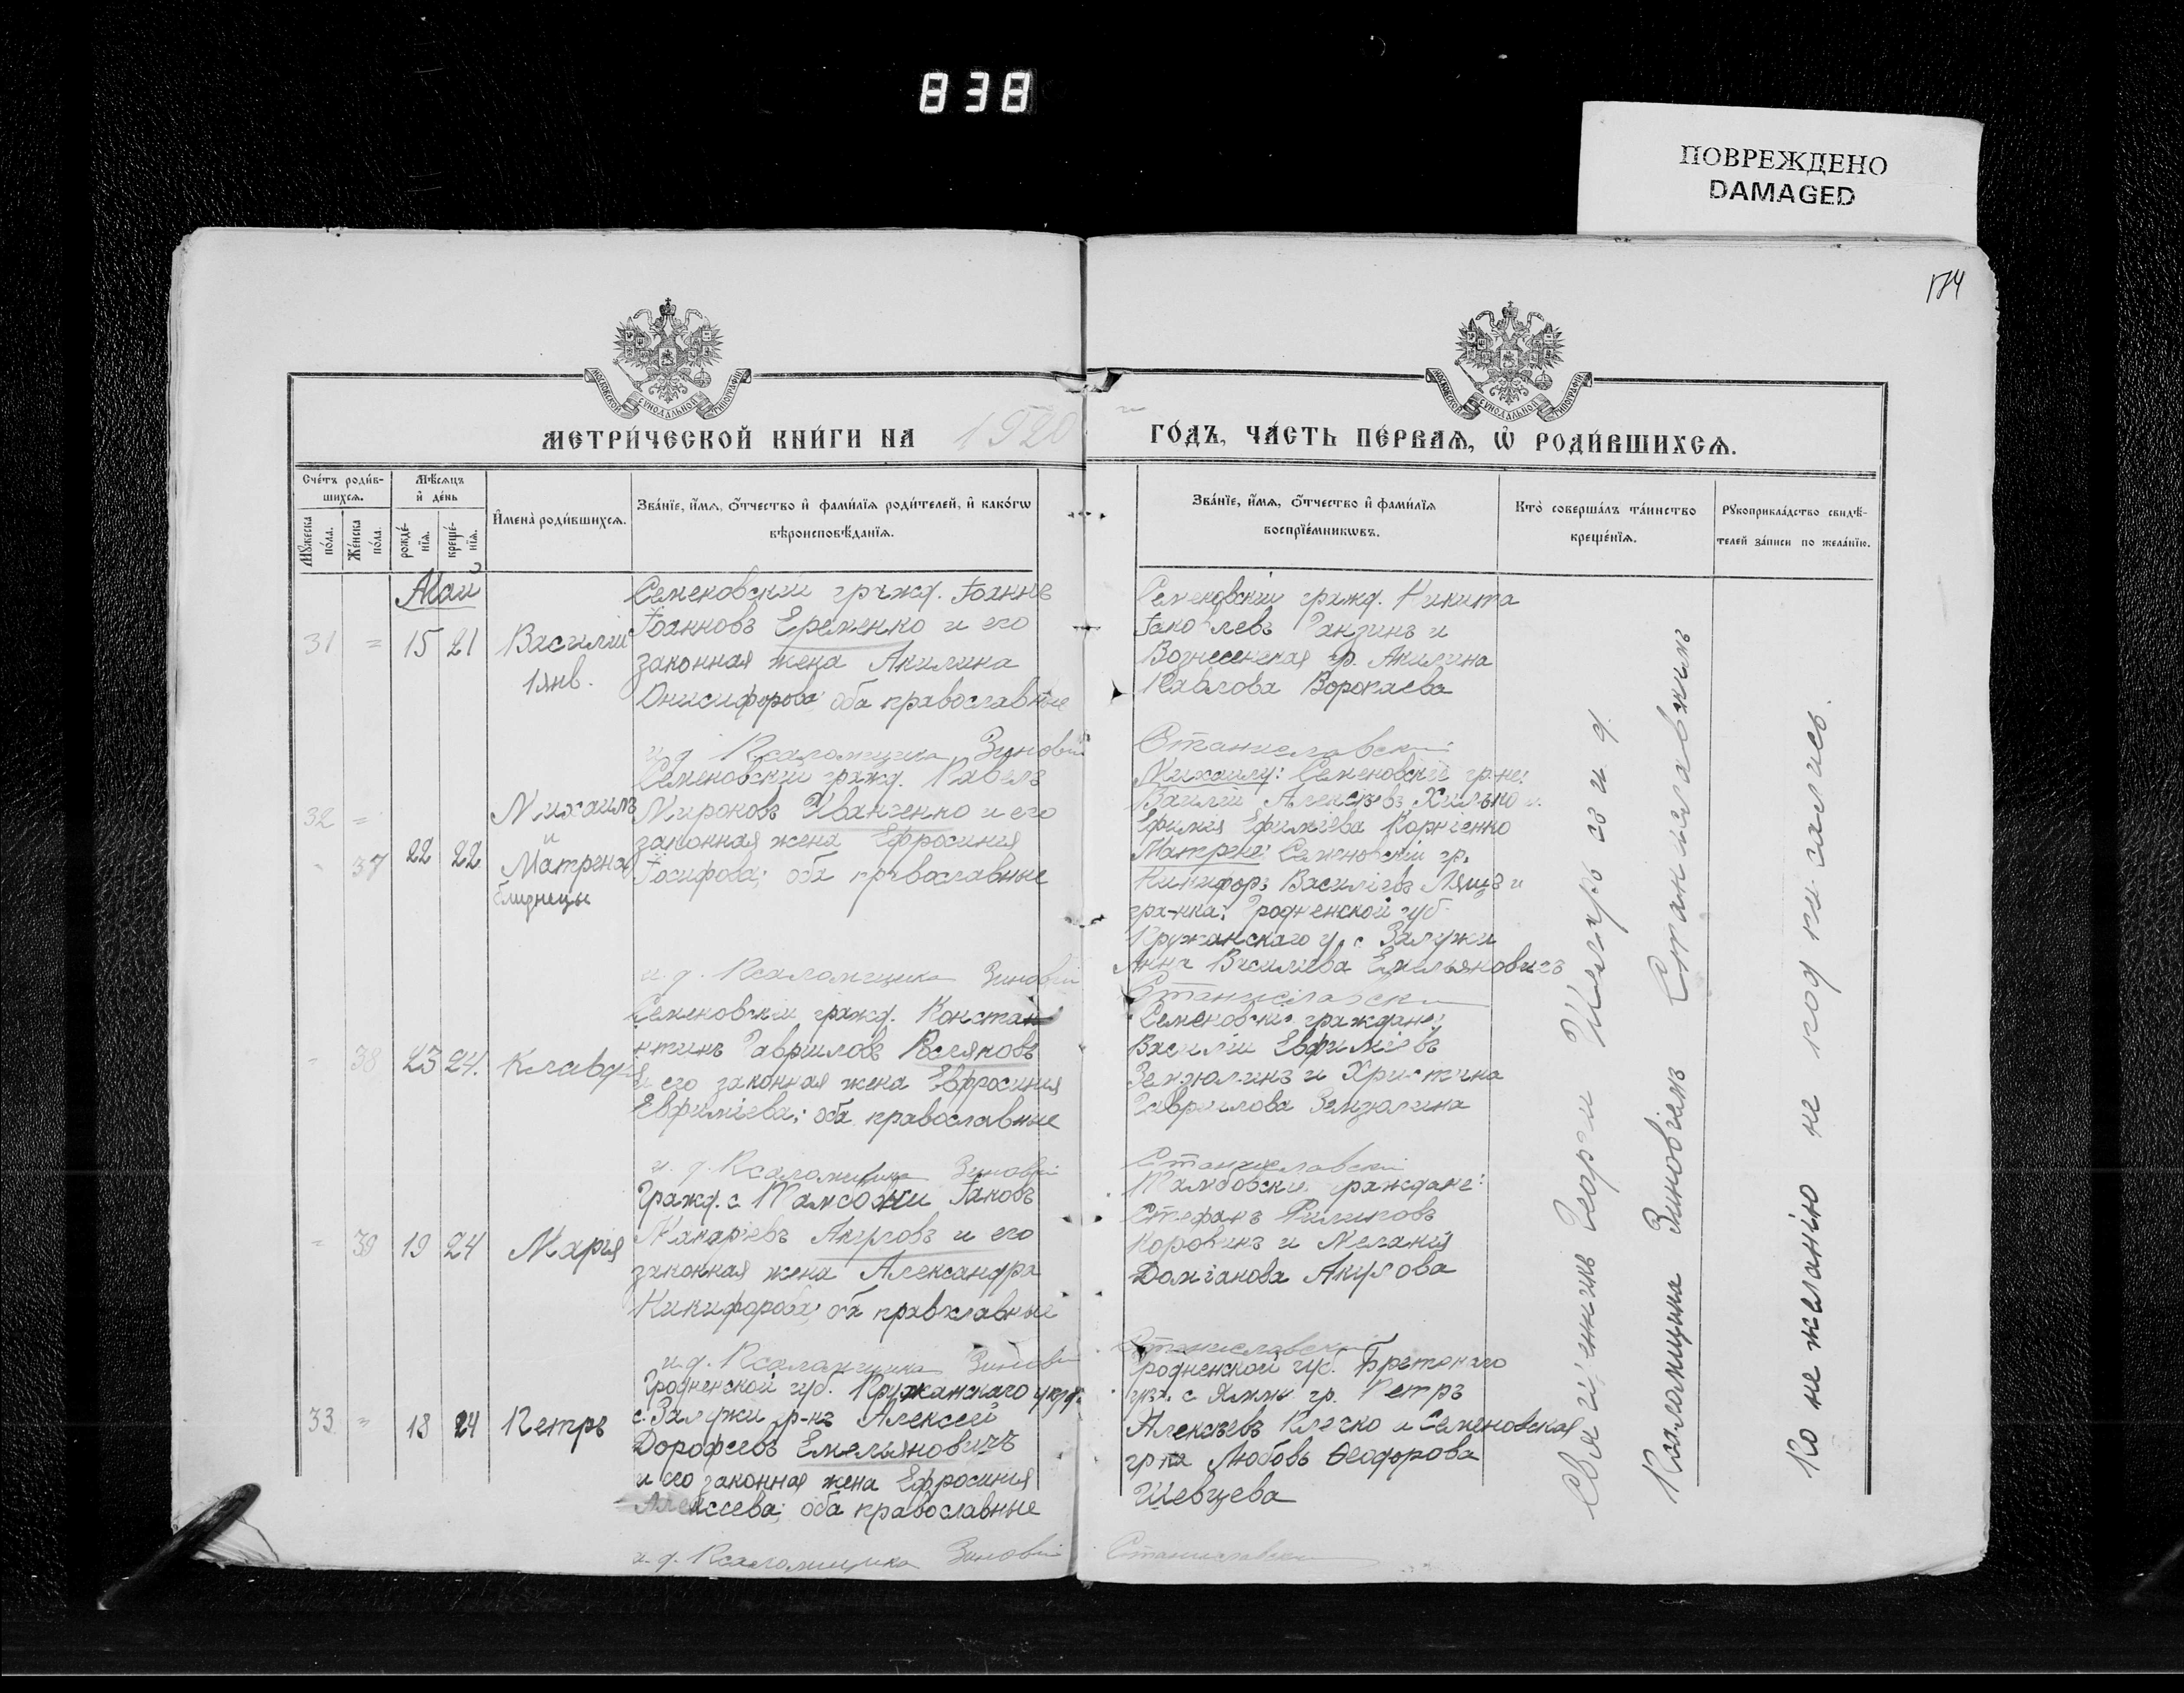 838
ПОВРЕЖДЕНО
DAMAGED
174
МОСКОВСКОЙ СУНОДАЛЬНОЙ ТИПОГРАФІИ
МОСКОВСКОЙ СУНОДАЛЬНОЙ ТИПОГРАФІИ
МЕТРИ́ЧЕСКОЙ КНИ́ГИ НА 1920
ГО́ДЪ, ЧА́СТЬ ПЕ́РВАѦ, Ѽ РОДИ́ВШИХСѦ.
Сче́тъ роди́в-
шихсѧ.
Мꙋжеска по́ла.
Же́нска по́ла.
Мѣ́сѧцъ
и҆ де́нь
рожде́-
нїѧ.
креще́-
нїѧ.
И҆мена̀ роди́вшихсѧ.
Зва́нїе, и҆́мѧ, ѻ҆́тчество и҆ фами́лїѧ роди́телей, и҆ како́гѡ
вѣроисповѣ́данїѧ.
Зва́нїе, и҆́мѧ, ѻ҆́тчество и҆ фами́лїѧ
воспрїе́мникѡвъ.
Кто̀ соверша́лъ та́инство
креще́нїѧ.
Рꙋкоприкла́дство свидѣ́-
телей за́писи по жела́нїю.
Май
31 = 15 21 Василій
1 янв.
Семеновскій гражд. Іоаннъ
Іоанновъ Еременко и его
законная жена Акилина
Онисифорова; оба православные
Семеновскій гражд. Никита
Іаковлевъ Ганзинъ и
Вознесенская гр. Акилина
Павлова Воропаева
и. д. Псаломщика Зиновій Станиславскій
32 =
37 22 22 Михаилъ
и
Матрена
близнецы
Семеновскій гражд. Павелъ
Мироновъ Иванченко и его
законная жена Ефросинія
Іосифова; оба православные
Михаилу: Семеновскіе гр-не:
Василій Алексѣевъ Хилько и
Ефимія Ефиміева Корніенко
Матрене: Семеновскій гр.
Никифоръ Василіевъ Ляшъ и
гра-нка: Гродненской губ.
Пружанскаго у. с. Залужи
Анна Василіева Емельяновичъ
и. д. Псаломщика Зиновій Станиславскій
38 23 24. Клавдія
Семеновскій гражд. Констан
нтинъ Гавриловъ Поляковъ
и его законная жена Евфросинія
Евфиміева; оба православные
Семеновскіе граждане:
Василій Евфиміевъ
Земзюлинъ и Христина
Гаврилова Земзюлина
и. д. Псаломщика Зиновій Станиславскій
= 39 19 24 Марія
Гражд. с. Тамбовки Іаковъ
Макаріевъ Акуловъ и его
законная жена Александра
Никифорова; оба православные
Тамбовскіе граждане:
Стефанъ Филиповъ
Коровинъ и Меланія
Доміанова Акулова
и. д. Псаломщика Зиновій Станиславскій
33 = 18 24 Петръ
Гродненской губ. Пружанскаго уѣзд.
с. Залужи гр-нъ Алексей
Дорофеевъ Емельяновичъ
и его законная жена Ефросинія
Алексеева; оба православные
Гродненской губ. Бретскаго
уѣз. с. гр. Петръ
Алексѣевъ Клечко и Семеновская
гр-ка Любовь Ѳеодорова
Шевцева
и. д. Псаломщика Зиновій Станиславскій
Священникъ Георгій съ и. д.
Псаломщика Зиновіемъ Станиславскимъ
По нежеланію не подписались.